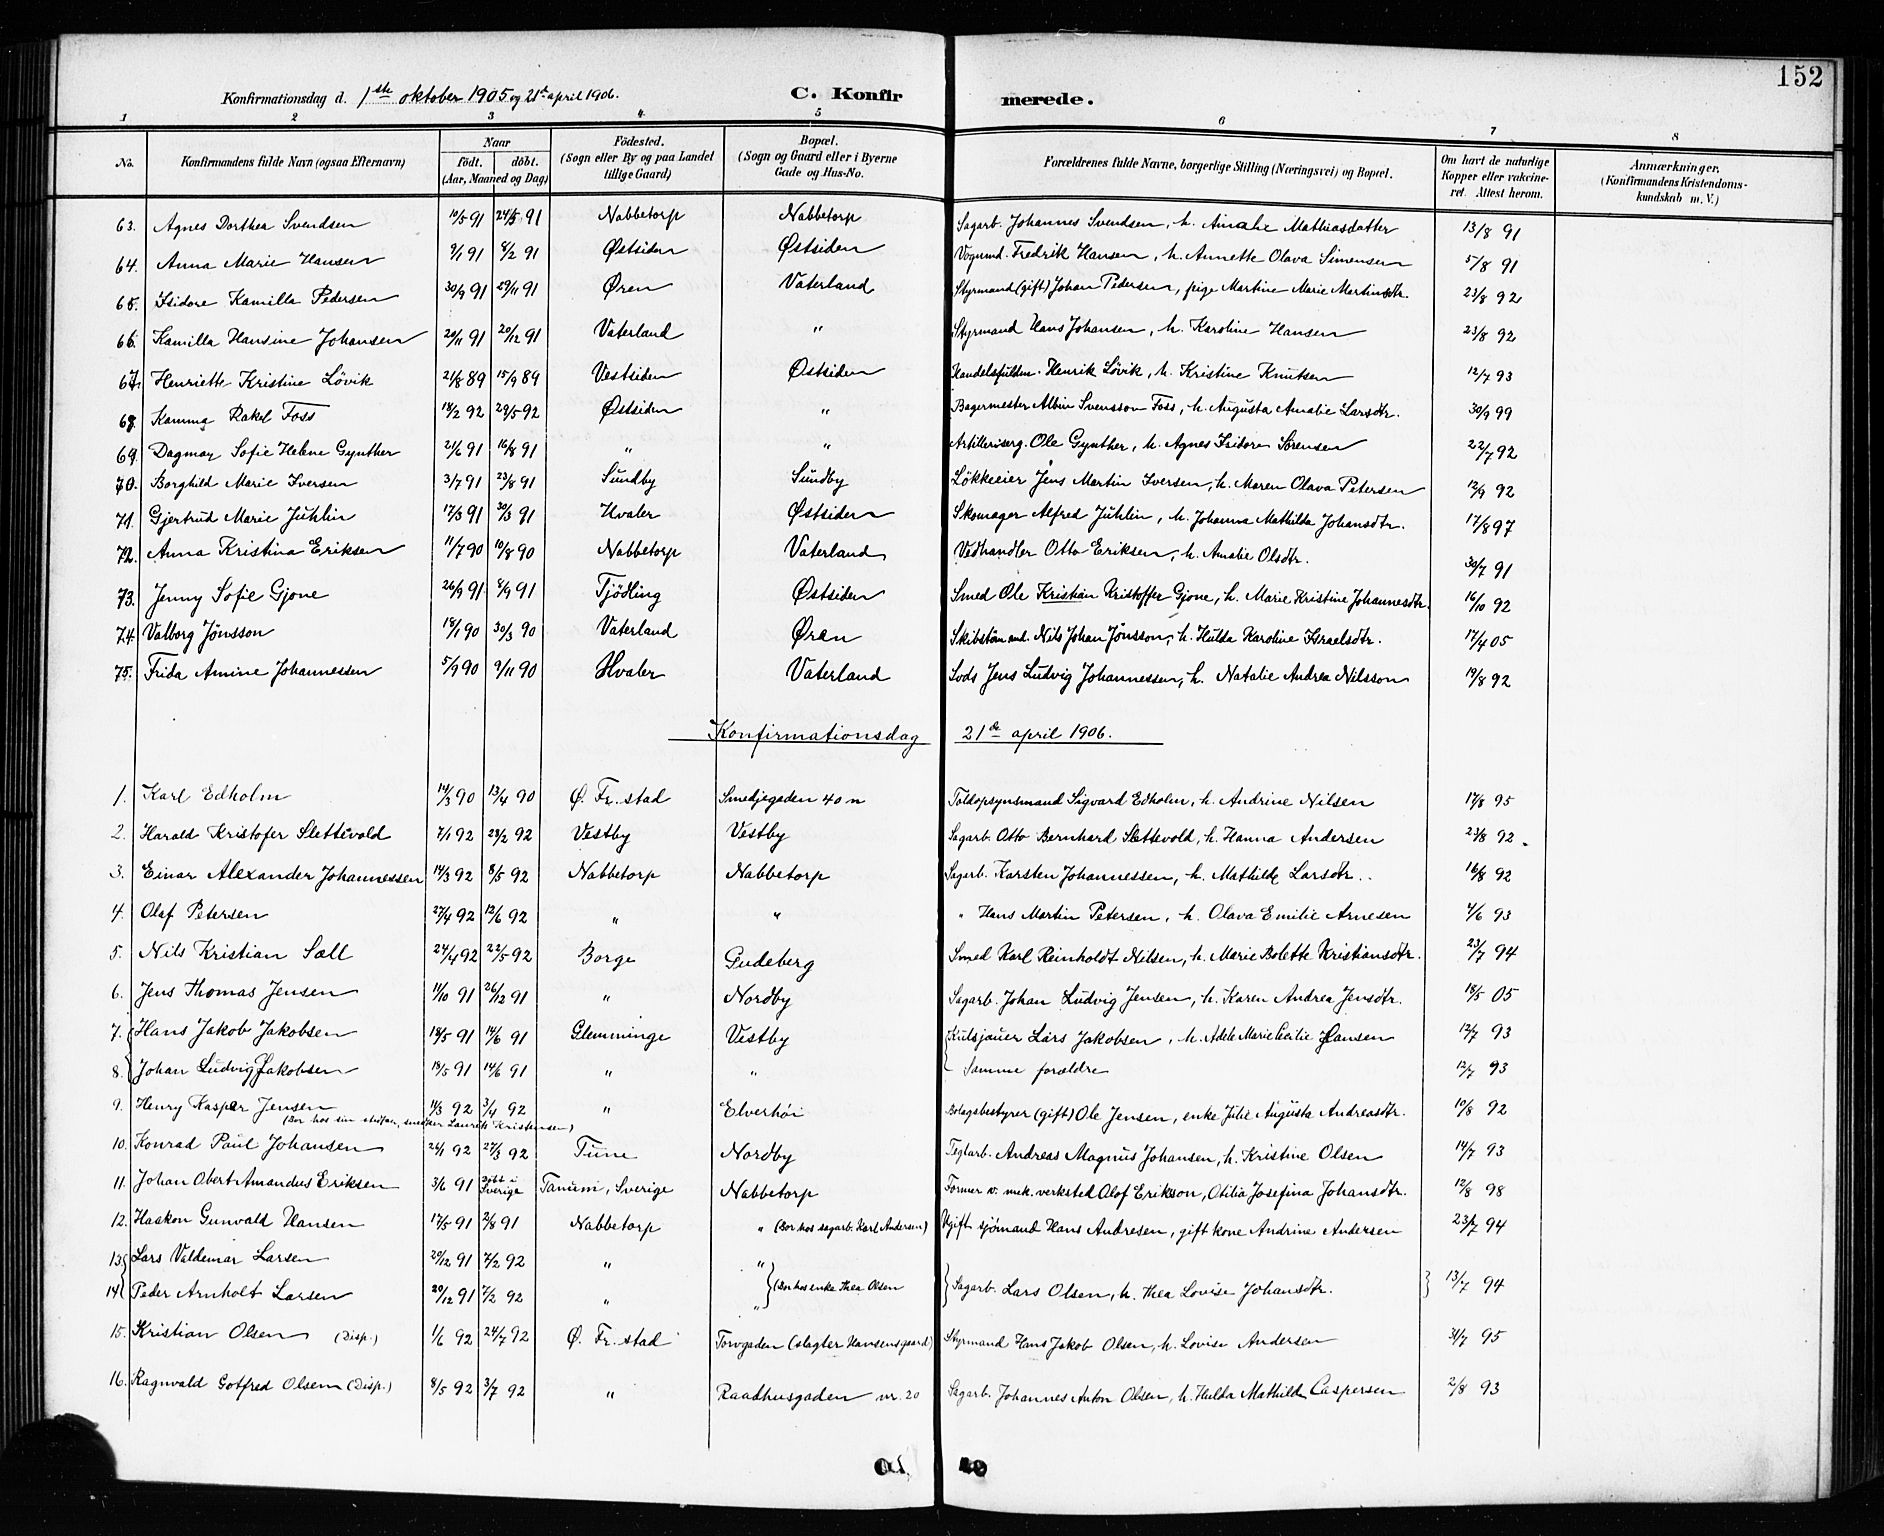 152
Konfirmationsdag d. 1ste oktober 1905 og 21de april 1906. C. Konfirmerede.
1 2 3 4 5 6 7 8
No. Konfirmandens fulde Navn (ogsaa Efternavn) Naar født. døbt. (Aar, Maaned og Dag) Fødested. (Sogn eller By og paa Landet tillige Gaard) Bopæl. (Sogn og Gaard eller i Byerne Gade og Hus-No. Forældrenes fulde Navne, borgerlige Stilling (Næringsvei) og Bopæl. Om havt de naturlige Kopper eller vakcineret. Attest herom. Anmærkninger. (Konfirmandens Kristendomskundskab m. V.)
63. Agnes Dorthea Svendsen 10/5 91 24/5 91 Nabbetorp Nabbetorp Sagarb. Johannes Svendsen, h. Amalie Mathiasdatter 13/8 91
64. Anna Marie Hansen 9/1 91 8/2 91 Østsiden Østsiden Vognmd. Fredrik Hansen, h. Annette Olava Simensen 5/8 91
65. Isidore Kamilla Pedersen 30/9 91 29/11 91 Øren Vaterland Styrmand (gift) Johan Pedersen, pige Martine Marie Martinsdtr. 23/8 92
66. Kamilla Hansine Johansen 20/11 91 20/12 91 Vaterland " Styrmand Hans Johansen, h. Karoline Hansen 23/8 92
67. Henriette Kristine Lövik 21/8 89 15/9 89 Vestsiden Østsiden Handelsfuldm. Henrik Lövik, h. Kristine Knutsen 12/7 93
68. Kamma Rakel Foss 18/2 92 29/5 92 Østsiden " Bagermester Albin Svensson Foss, h. Augusta Amalie Larsdtr. 30/9 99
69. Dagmar Sofie Helene Gynther 21/6 91 16/8 91 " " Artilleriserg. Ole Gynther, h. Agnes Isidora Sørensen 22/7 92
70. Borghild Marie Iversen 3/7 91 23/8 91 Sundby Sundby Løkkeeier Jens Martin Iversen, h. Maren Olava Petersen 12/9 92
71. Gjertrud Marie Juhlin 17/3 91 30/3 91 Hvaler Østsiden Skomager Alfred Juhlin, h. Johanna Mathilda Johansdtr. 17/8 97
72. Anna Kristina Eriksen 11/7 90 10/8 90 Nabbetorp Vaterland Vedhandler Otto Eriksen, h. Amalie Olsdtr. 30/7 91
73. Jenny Sofie Gjone 26/9 91 8/9 91 Tjödling Østsiden Smed Ole Kristian Kristoffer Gjone, h. Marie Kristine Johannesdtr. 16/10 92
74. Valborg Jönsson 18/1 90 30/3 90 Vaterland Øren Skibstømmd. Nils Johan Jönsson, h. Hulda Karoline Israelsdtr. 17/4 05
75. Frida Amine Johannessen 5/9 90 9/11 90 Hvaler Vaterland Lods Jens Ludvig Johannessen, h. Natalie Andrea Nilsson 19/8 92
Konfirmationsdag 21de april 1906.
1. Karl Edholm 14/3 90 13/4 90 Ø. Fr.stad Smedjegaden 40 n Toldopsynsmand Sigvard Edholm, h. Andrine Nilsen 17/8 95
2. Harald Kristofer Slettevold 7/1 92 28/2 92 Vestby Vestby Sagarb. Otto Bernhard Slettevold, h. Hanna Andersen 23/8 92
3. Einar Alexander Johannessen 14/3 92 8/5 92 Nabbetorp Nabbetorp Sagarb. Karsten Johannessen, h. Mathilde Larsdtr. 16/8 92
4. Olaf Petersen 27/4 92 12/6 92 " " " Hans Martin Petersen, h. Olava Emilie Arnesen 4/6 93
5. Nils Kristian Sæll 24/4 92 22/5 92 Borge Gudeberg Smed Karl Reinholdt Nilsen, h. Marie Bolette Kristiansdtr. 23/7 94
6. Jens Thomas Jensen 11/10 91 26/12 91 " Nordby Sagarb. Johan Ludvig Jensen, h. Karen Andrea Jensdtr. 18/5 05
7. Hans Jakob Jakobsen 18/5 91 14/6 91 Glemminge Vestby Kulsjauer Lars Jakobsen, h. Adele Marie Cecilie Hansen 12/7 93
8. Johan Ludvig Jakobsen 18/5 91 14/6 91 " " Samme forældre 12/7 93
9. Henry Kasper Jensen 11/3 92 3/4 92 " Elverhöi Bolagsbestyrer (gift) Ole Jensen, enke Julie Augusta Andreasdtr. 10/8 92
(Bor hos sin stiffar, Laurits Kristensen)
10. Konrad Paul Johansen 24/1 92 27/3 92 Tune Nordby Teglarb. Andreas Magnus Johansen, h. Kristine Olsen 14/7 93
11. Johan Obert Amandus Eriksen 3/6 91 døbt i Sverige Tanum, Sverige Nabbetorp Former v. mek. verksted Olof Erikson, Otilia Josefina Johansdtr. 12/8 98
12. Haakon Gunvald Hansen 17/5 91 2/8 91 Nabbetorp " (Bor hos sagarb. Karl Andersen) Ugift sjömand Hans Andresen, gift kone Andrine Andersen 23/7 94
13. Lars Valdemar Larsen 20/12 91 7/2 92 " "
14. Peder Arnholt Larsen 20/12 91 7/2 92 " " (Bor hos enke Thea Olsen Sagarb. Lars Olsen, h. Thea Lovise Johansdtr. 13/7 94
15. Kristian Olsen (Disp.) 1/6 92 24/7 92 Ø. Fr.stad Torvgaden (slagter Hansensgaard) Styrmand Hans Jakob Olsen, h. Lovise Andersen 31/7 95
16. Ragnvald Gotfred Olsen (Disp.) 8/5 92 3/7 92 " Raadhusgaden nr. 20 Sagarb. Johannes Anton Olsen, h. Hulda Mathilde Caspersen 2/8 93